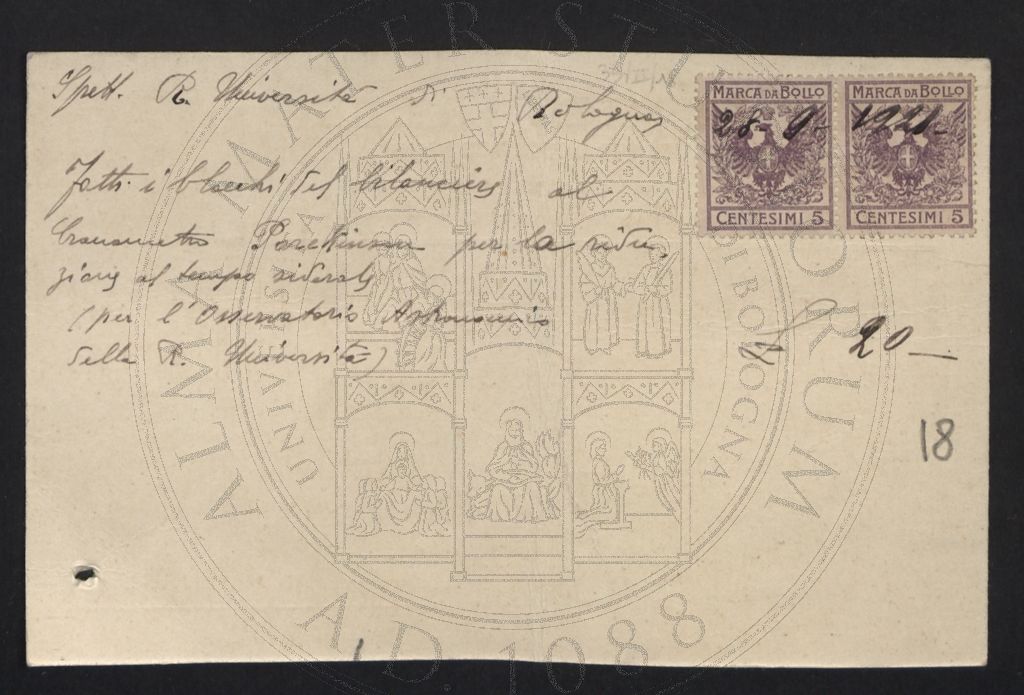 Spett. R. Università di Bologna
MARCA DA BOLLO
28-9-
CENTESIMI 5
MARCA DA BOLLO
1921-
CENTESIMI 5
Fatti i blocchi del bilanciere al
Cronometro per la ridu
zione al tempo siderale
(per l'Osservatorio Astronomico
della R. Università)
£ 20 —
18
ALMA MATER STUDIORUM
UNIVERSITÀ DI BOLOGNA
A.D. 1088